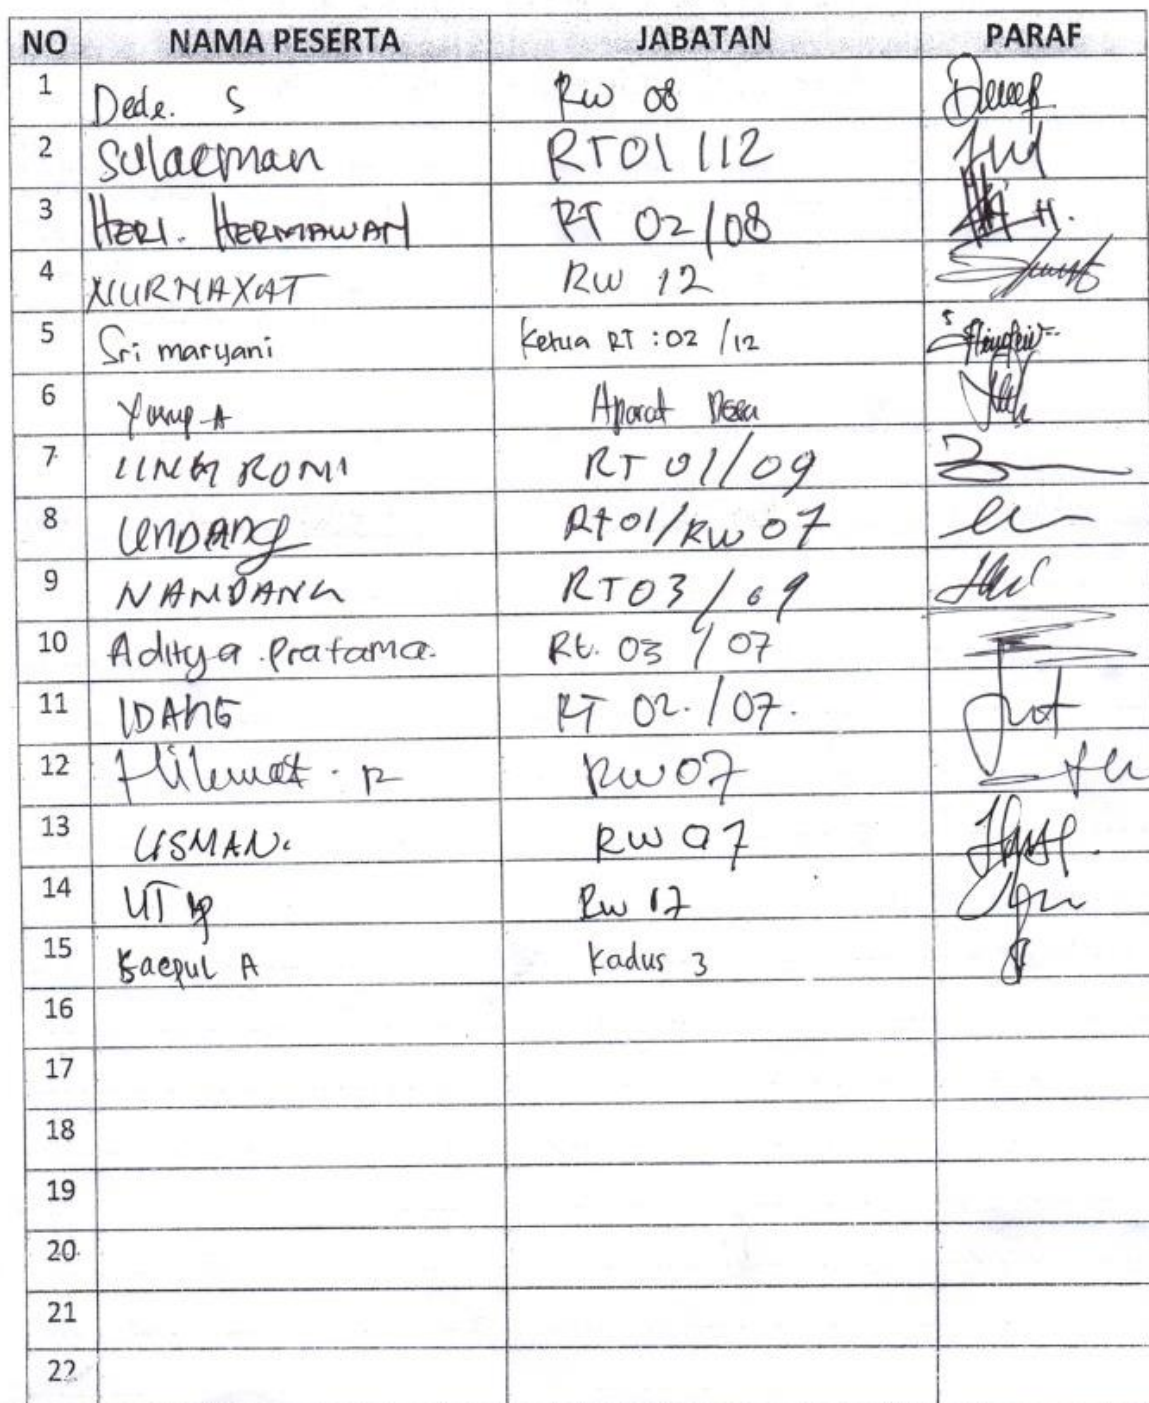 NO NAMA PESERTA JABATAN PARAF
1 Dede. S RW 08
2 Sulaeman RT01/12
3 HERI. HERMAWAN RT 02/08
4 NURHAYAT RW 12
5 Sri maryani Ketua RT : 02 /12
6 Yusup A Aparat Desa
7 UNGROMI RT 01/09
8 UNDANG Rt01/RW 07
9 NANDANG RT03/09
10 Aditya Pratama. Rt. 03 / 07
11 IDANG RT 02. / 07.
12 Hikmat . R RW07
13 USMAN. RW 07
14 RW 17
15 Saepul A Kadus 3
16
17
18
19
20
21
22